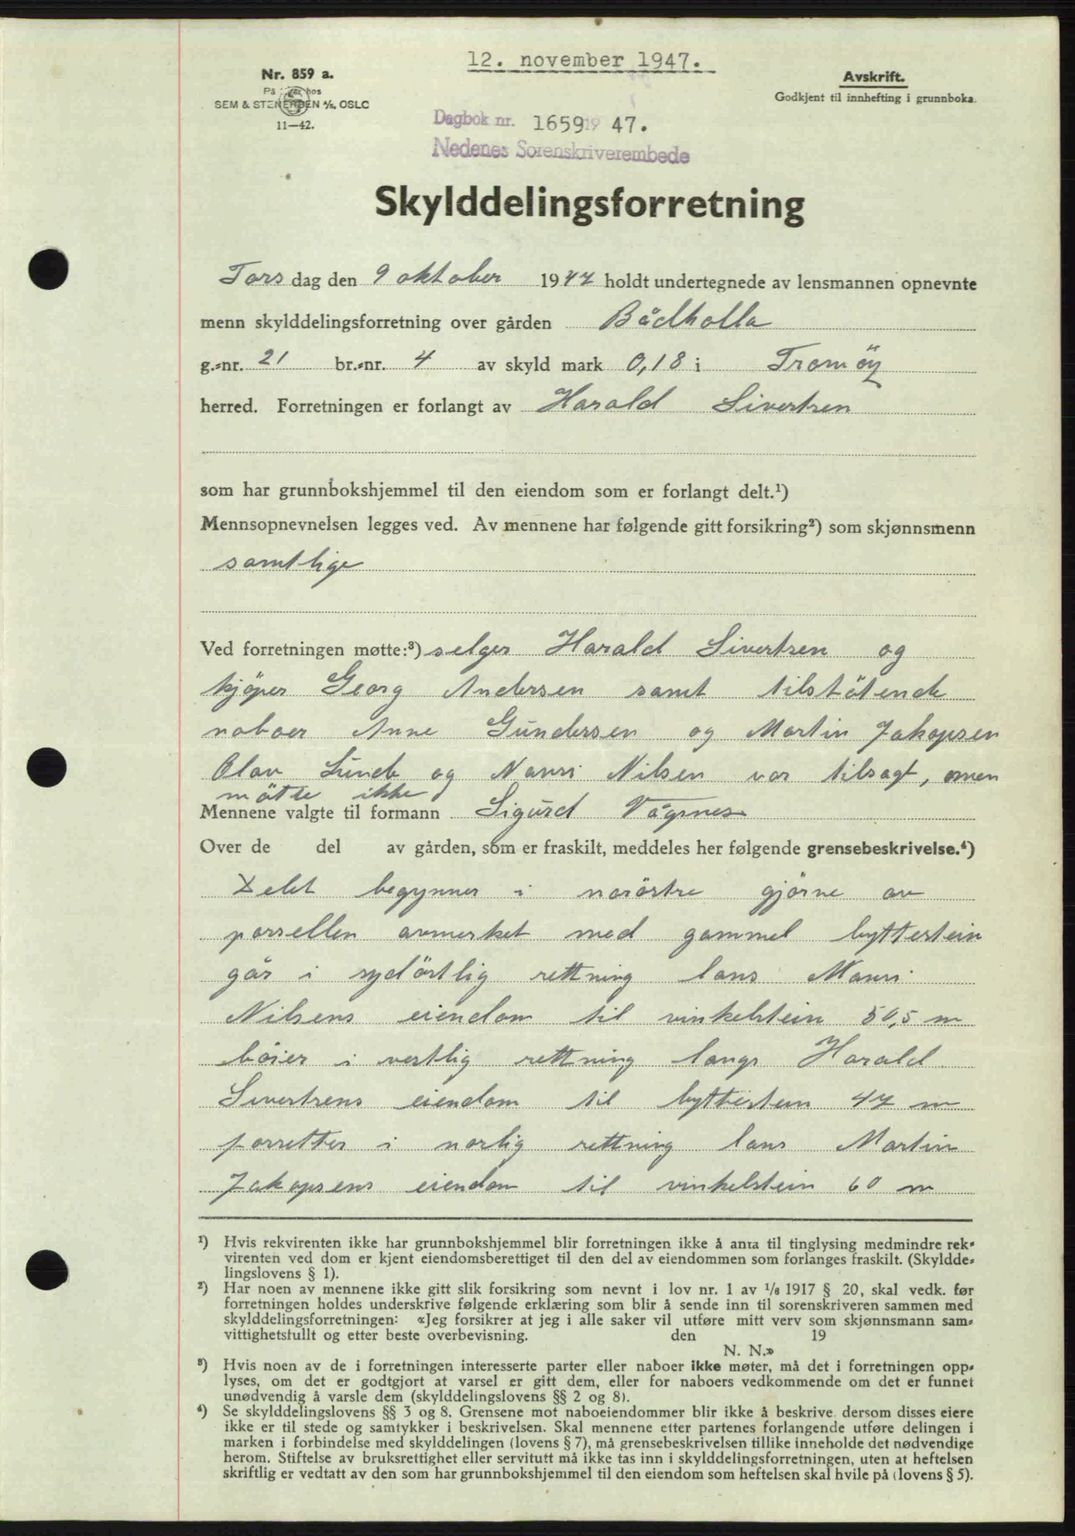 12. november 1947.
Nr. 859 a.
SEM & STENERSEN A/S, OSLO
11—42.
Avskrift.
Godkjent til innhefting i grunnboka.
Dagbok nr. 1659 19 47.
Nedenes Sorenskriverembede
Skylddelingsforretning
Tors dag den 9 oktober 1947 holdt undertegnede av lensmannen opnevnte
menn skylddelingsforretning over gården Bådholla
g.-nr. 21 br.-nr. 4 av skyld mark 0,18 i Tromöy
herred. Forretningen er forlangt av Harald Sivertsen
som har grunnbokshjemmel til den eiendom som er forlangt delt.¹)
Mennsopnevnelsen legges ved. Av mennene har følgende gitt forsikring²) som skjønnsmenn
samtlige
Ved forretningen møtte:³) selger Harald Sivertsen og
kjöper Georg Andersen samt tilstötende
naboer Anne Gundersen og Martin Jakopsen
Olav Lunde og Nanri Nilsen var tilsagt, men
mötte ikke
Mennene valgte til formann Sigurd Vågsnes
Over de del av gården, som er fraskilt, meddeles her følgende grensebeskrivelse.⁴)
Delet begynner i noröstre gjörne av
parsellen avmerket med gammel byttestein
går i sydöstlig rettning lans Nanri
Nilsens eiendom til vinkelstein 50,5 m
böier i vestlig rettning langs Harald
Sivertsens eiendom til byttestein 47 m
forretter i norlig rettning lans Martin
Jakopsens eiendom til vinkelstein 60 m
¹) Hvis rekvirenten ikke har grunnbokshjemmel blir forretningen ikke å anta til tinglysing medmindre rek-
virenten ved dom er kjent eiendomsberettiget til den del av eiendommen som forlanges fraskilt. (Skyldde-
lingslovens § 1).
²) Har noen av mennene ikke gitt slik forsikring som nevnt i lov nr. 1 av 1/6 1917 § 20, skal vedk. før
forretningen holdes underskrive følgende erklæring som blir å sende inn til sorenskriveren sammen med
skylddelingsforretningen: «Jeg forsikrer at jeg i alle saker vil utføre mitt verv som skjønnsmann sam-
vittighetsfullt og etter beste overbevisning. den 19
N. N.»
³) Hvis noen av de i forretningen interesserte parter eller naboer ikke møter, må det i forretningen opp-
lyses, om det er godtgjort at varsel er gitt dem, eller for naboers vedkommende om det er funnet
unødvendig å varsle dem (skylddelingslovens §§ 2 og 8).
⁴) Se skylddelingslovens §§ 3 og 8. Grensene mot naboeiendommer blir ikke å beskrive dersom disses eiere
ikke er til stede og samtykker i beskrivelsen. Skal mennene etter partenes forlangende utføre delingen i
marken i forbindelse med skylddelingen (lovens § 7), må grensebeskrivelsen tillike inneholde det nødvendige
herom. Stiftelse av bruksrettighet eller servitutt må ikke tas inn i skylddelingsforretningen, uten at heftelsen
skriftlig er vedtatt av den som har grunnbokshjemmel til den eiendom som heftelsen skal hvile på (lovens § 5).